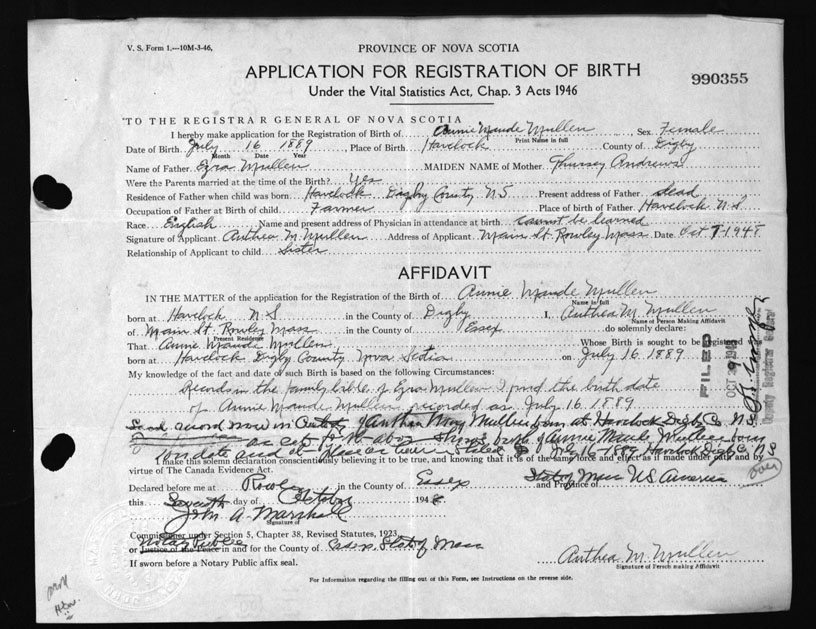 V. S. Form 1.—10M-3-46,
PROVINCE OF NOVA SCOTIA
APPLICATION FOR REGISTRATION OF BIRTH
990355
Under the Vital Statistics Act, Chap. 3 Acts 1946
TO THE REGISTRAR GENERAL OF NOVA SCOTIA
I hereby make application for the Registration of Birth of Annie Maude Mullen, Sex Female
Print Name in full
Date of Birth July 16 1889, Place of Birth Havelock County of Digby
Month Date Year
Name of Father Ezra Mullen MAIDEN NAME of Mother Andrews
Were the Parents married at the time of the Birth? Yes
Residence of Father when child was born Havelock Digby County N.S Present address of Father dead
Occupation of Father at Birth of child Farmer Place of birth of Father Havelock N.S
Race English Name and present address of Physician in attendance at birth cannot be learned
Signature of Applicant Anthea M. Mullen Address of Applicant Main St. Rowley Mass. Date Oct 7-1948
Relationship of Applicant to child Sister
AFFIDAVIT
IN THE MATTER of the application for the Registration of the Birth of Annie Maude Mullen
Name in full
born at Havelock N S in the County of Digby I, Anthea M. Mullen
Name of Person Making Affidavit
of Main St. Rowley Mass in the County of Essex do solemnly declare:
Present Residence
That Annie Maude Mullen Whose Birth is sought to be registered
born at Havelock Digby County Nova Scotia on July 16 1889
My knowledge of the fact and date of such Birth is based on the following Circumstances:
Records in the family bible of Ezra Mullen I find the birth date
of Annie Maude Mullen recorded as July 16 1889
record now in of Anthea Mullen at Havelock Digby Co. N.S.
as birth of Annie Maude Mullen born
on date and place as above stated July 16-1889 Havelock Digby Co N S
(over)
I make this solemn declaration conscientiously believing it to be true, and knowing that it is of the same force and effect as if made under oath and by
virtue of The Canada Evidence Act.
Declared before me at Rowley in the County of Essex and Province of State of Mass U.S. America
this Seventh day of October 1948
John A. Marshall
Signature of
Commissioner under Section 5, Chapter 38, Revised Statutes, 1923
Notary Public
or Justice of the Peace in and for the County of Essex State of Mass
If sworn before a Notary Public affix seal.
Anthea M. Mullen
Signature of Person making Affidavit
For Information regarding the filling out of this Form, see Instructions on the reverse side.
FILED